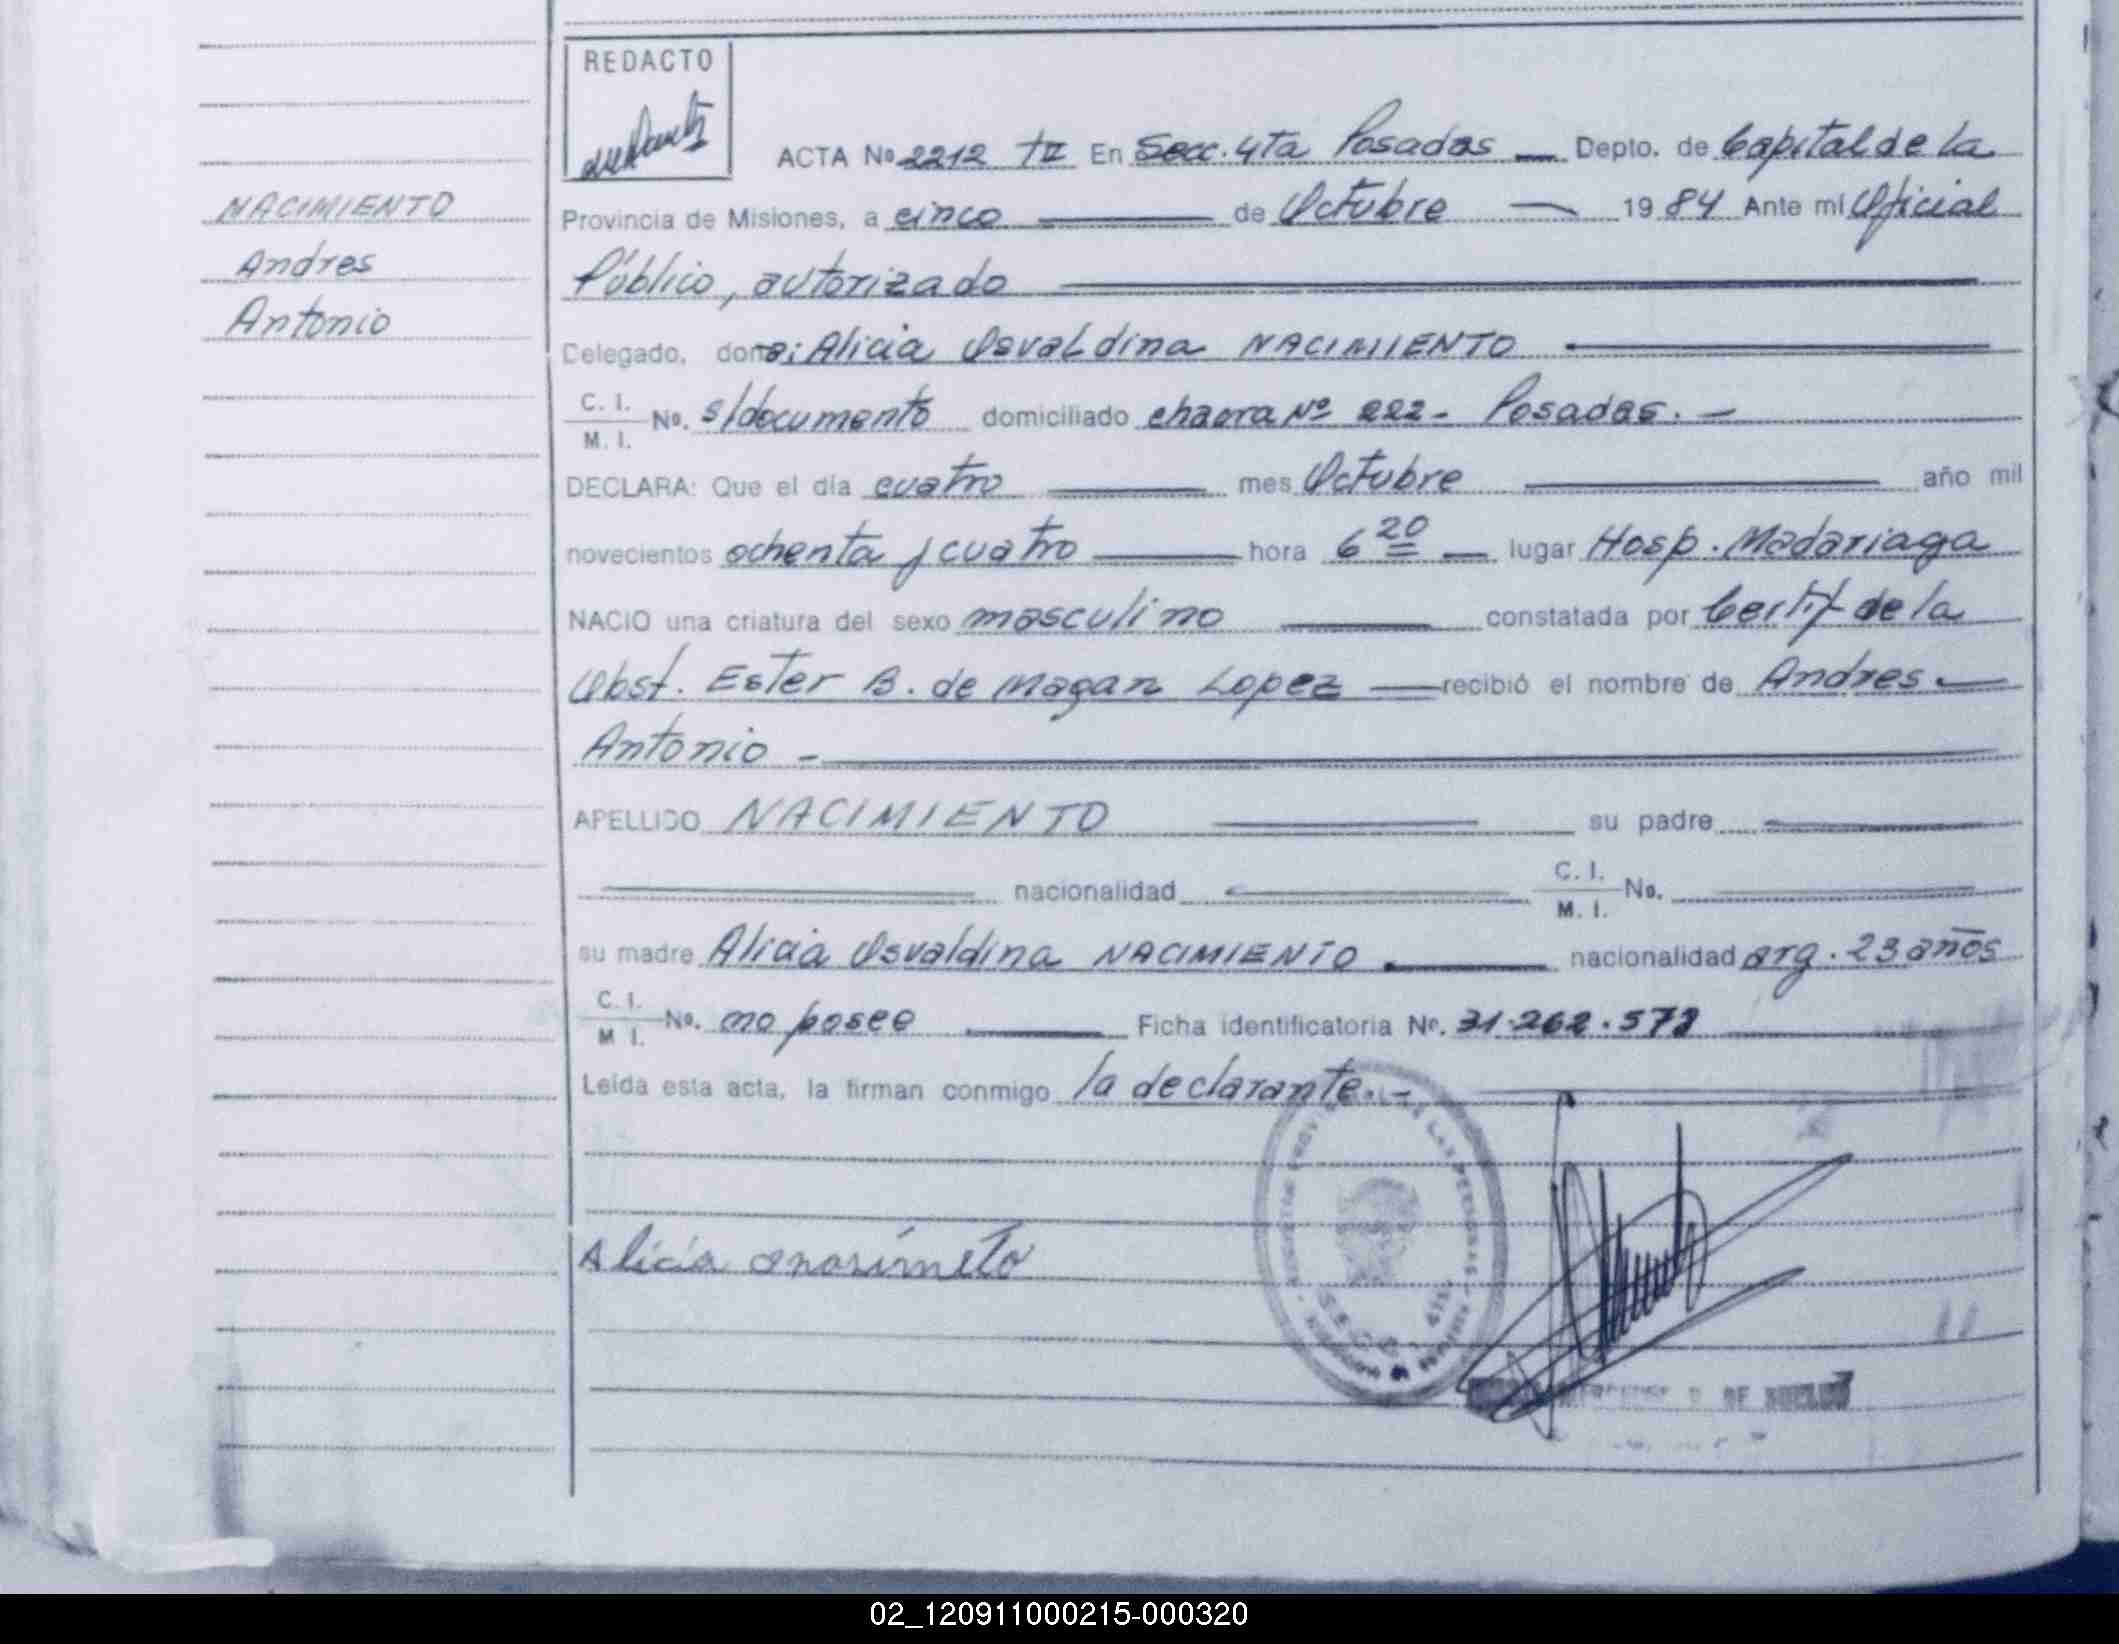 REDACTO
ACTA No 2212 tII En Secc. 4ta Posadas Depto. de Capital de la
NACIMIENTO
Provincia de Misiones, a cinco de Octubre 1984 Ante mi Oficial
Andres
Público, autorizado
Antonio
Delegado, dona: Alicia Osvaldina NACIMIENTO
C. I.
M. I.
No. s/documento domiciliado chacra Nº 222- Posadas.-
DECLARA: Que el día cuatro mes Octubre año mil
novecientos ochenta y cuatro hora 6 20 lugar Hosp. Madariaga
NACIO una criatura del sexo masculino constatada por Certif de la
Obst. Ester B. de Magan Lopez recibió el nombre de Andres
Antonio -
APELLIDO NACIMIENTO su padre
nacionalidad C. I.
M. I.
No.
su madre Alicia Osvaldina NACIMIENTO nacionalidad arg. 23 años
C. I.
M. I.
No. no posee Ficha identificatoria No. 31.262.573
Leída esta acta, la firman conmigo la declarante.-
Alicia
02_120911000215-000320